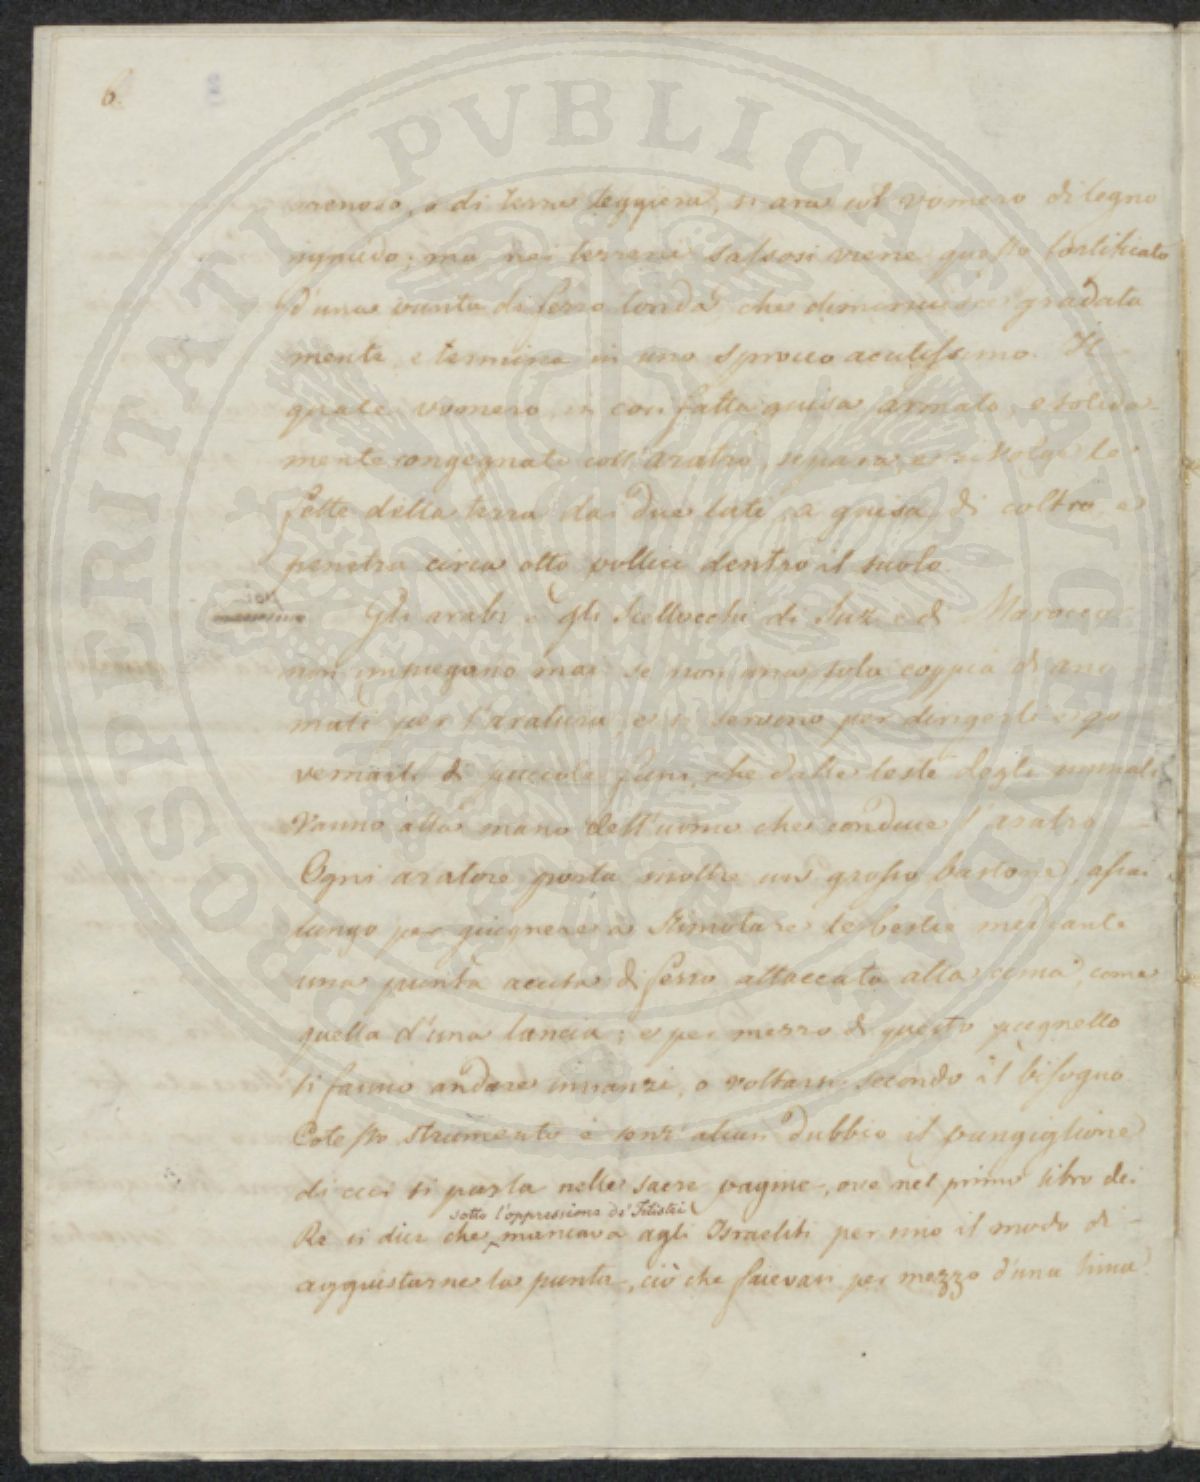 6.
arenoso, o di terra leggiera, si ara col vomero di legno
; ma nei terreni sassosi viene questo fortificato
d'una punta di ferro tonda, che diminuisce gradata
mente, e termina in uno sprocco acutissimo. Il
quale vomero, in così fatta guisa armato, e solida-
mente congegnato coll'aratro, separa, e rivolge le
fette della terra dai due lati, a guisa di coltro, e
penetra circa otto pollici dentro il suolo.
Gli arabi e gli Scellocchi di Suz e di Marocco
non impiegano mai se non una sola coppia di ani
mali per l'aratura, e si servono per dirigerli e go
vernarli di piccole funi, che dalle teste degli animali
vanno alla mano dell'uomo che conduce l'aratro
Ogni aratore porta inoltre un grosso bastone, assai
lungo per giugnere a stimolare le bestie mediante
una punta acuta di ferro attaccata alla cima, come
quella d'una lancia; e per mezzo di questo
si fanno andare innanzi, o voltarsi secondo il bisogno
Cotesto strumento è senz'alcun dubbio il pungiglione
di cui si parla nelle sacre pagine, ove nel primo libro dei
sotto l'oppressione de' Filistei
Re si dice che mancava agli Israeliti per sino il modo di
aggiustarne la punta, ciò che facevasi per mezzo d'una lima
PROSPERITATI PVBLICAE AVGENDAE